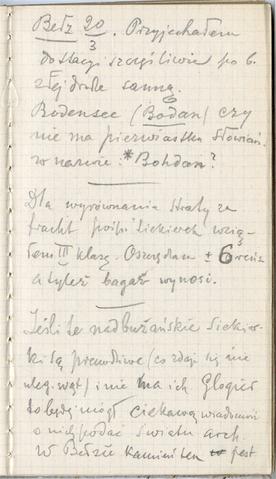 Bełz 20/3. Przyjechałem
do stacji szczęśliwie po 6.
złej drodze sanną.
Bodensee (Bodan) czy
nie ma pierwiastka słowiań.
w nazwie. * Bohdan?
Dla wyrównania straty za
fracht pośp. siekierek wzią-
łem III klasę. Oszczędzam ± 6
a tyleż bagaż wynosi.
Jeśli te nadbużańskie siekier-
ki są prawdziwe (co zdaje się nie
uleg. wąt) i nie ma ich Gloger
to będę mógł ciekawą wiadomość
o nich podać światu arch.
w Bełzie kamień ten jest